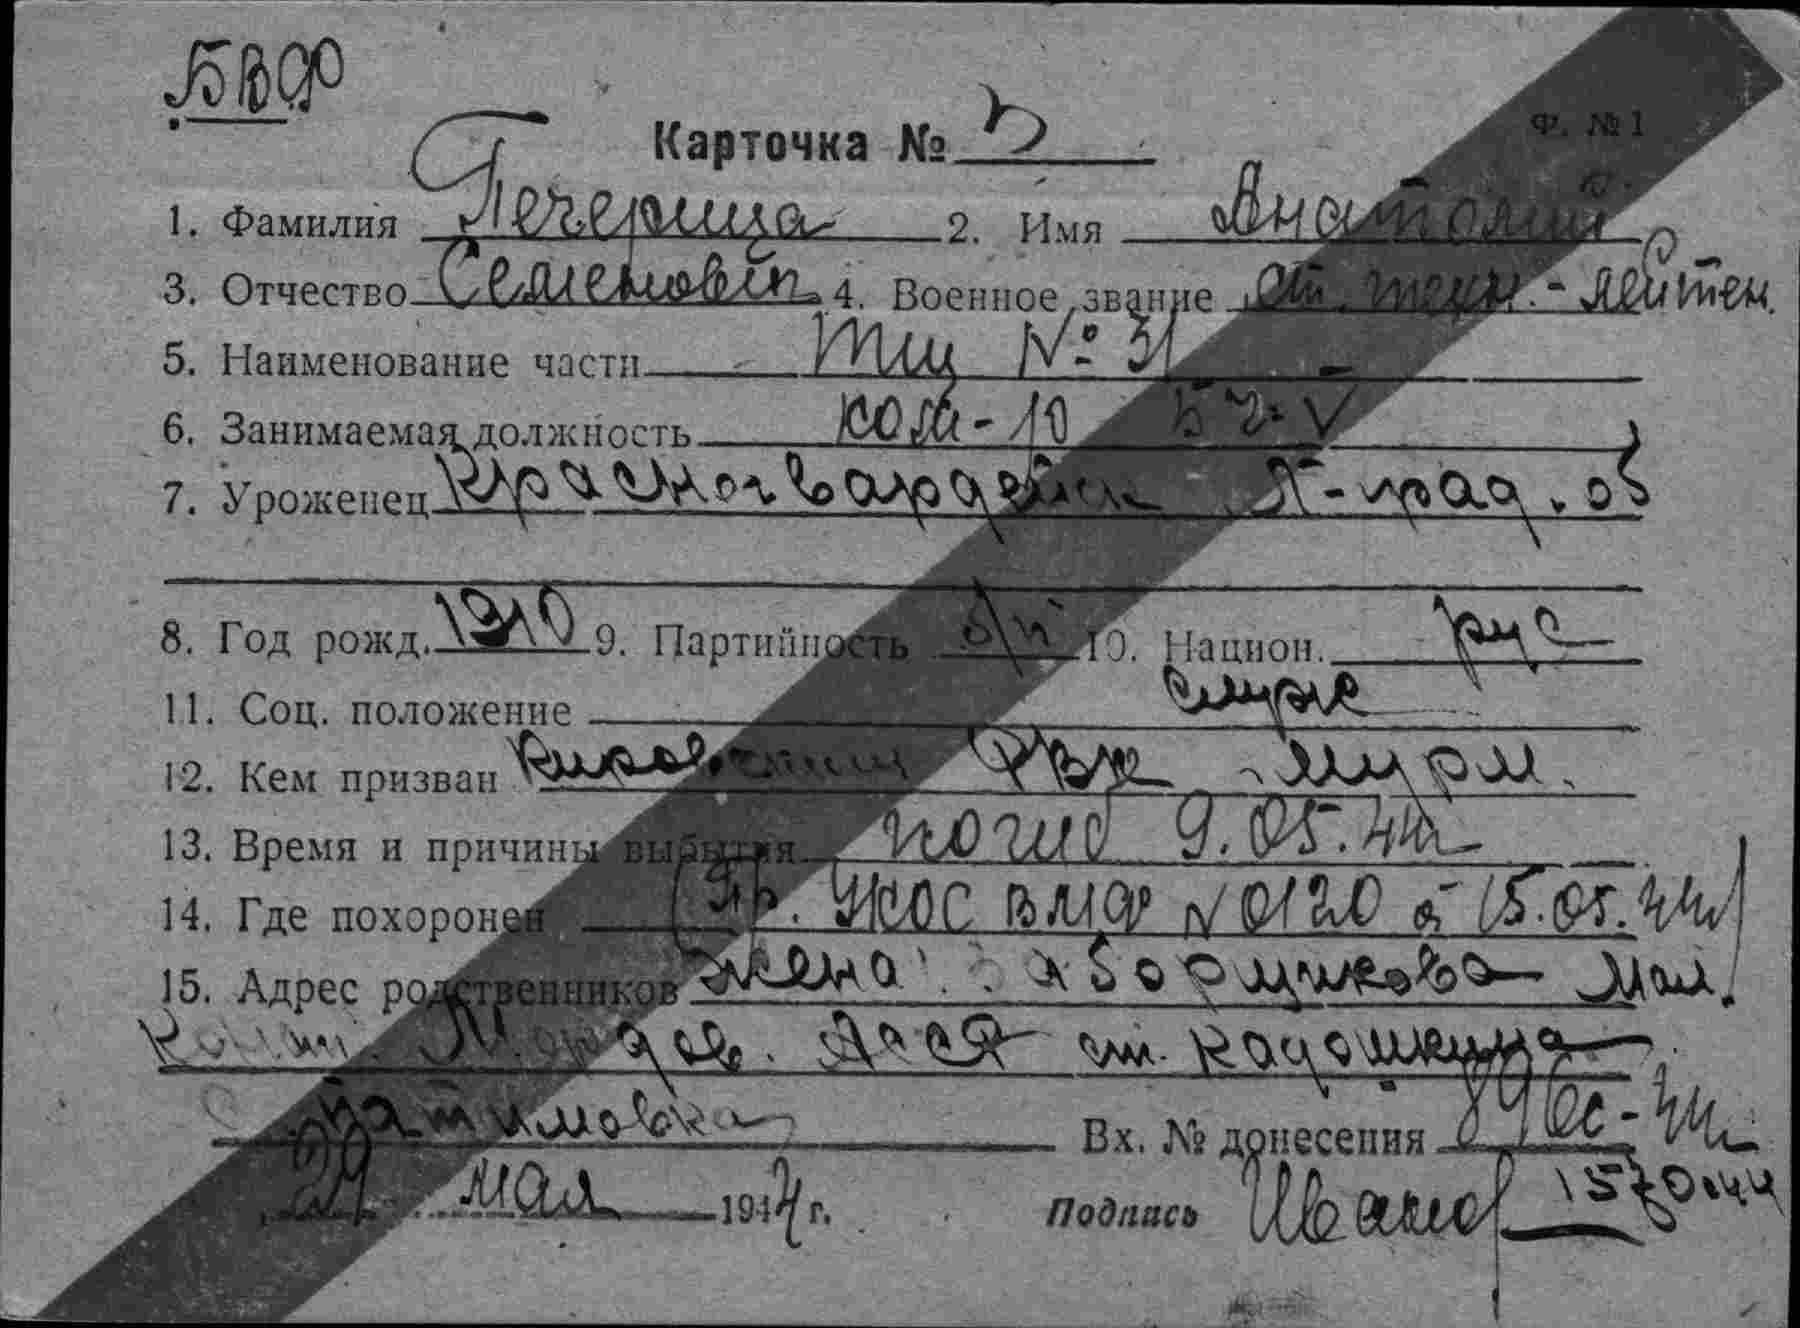 БВФ
Карточка № 3
Ф. № 1
1. Фамилия Печерица 2. Имя Анатолий
3. Отчество Семенович 4. Военное звание ст. техн.-лейтен.
5. Наименование части ТЩ № 31
6. Занимаемая должность ком-р БЧ-V
7. Уроженец Красногвардейск Л-град. об
8. Год рожд. 1910 9. Партийность б/п 10. Национ. рус
11. Соц. положение служ
12. Кем призван Кировским РВК Мурм.
13. Время и причины выбытия погиб 9.05.44г
14. Где похоронен (Пр. УКОС ВМФ N 0120 от 15.05.44г)
15. Адрес родственников жена: Заборщикова
Мордов. АССР ст. Кадошкино
Вх. № донесения
29 мая 1944 г. Подпись Иванов 1570